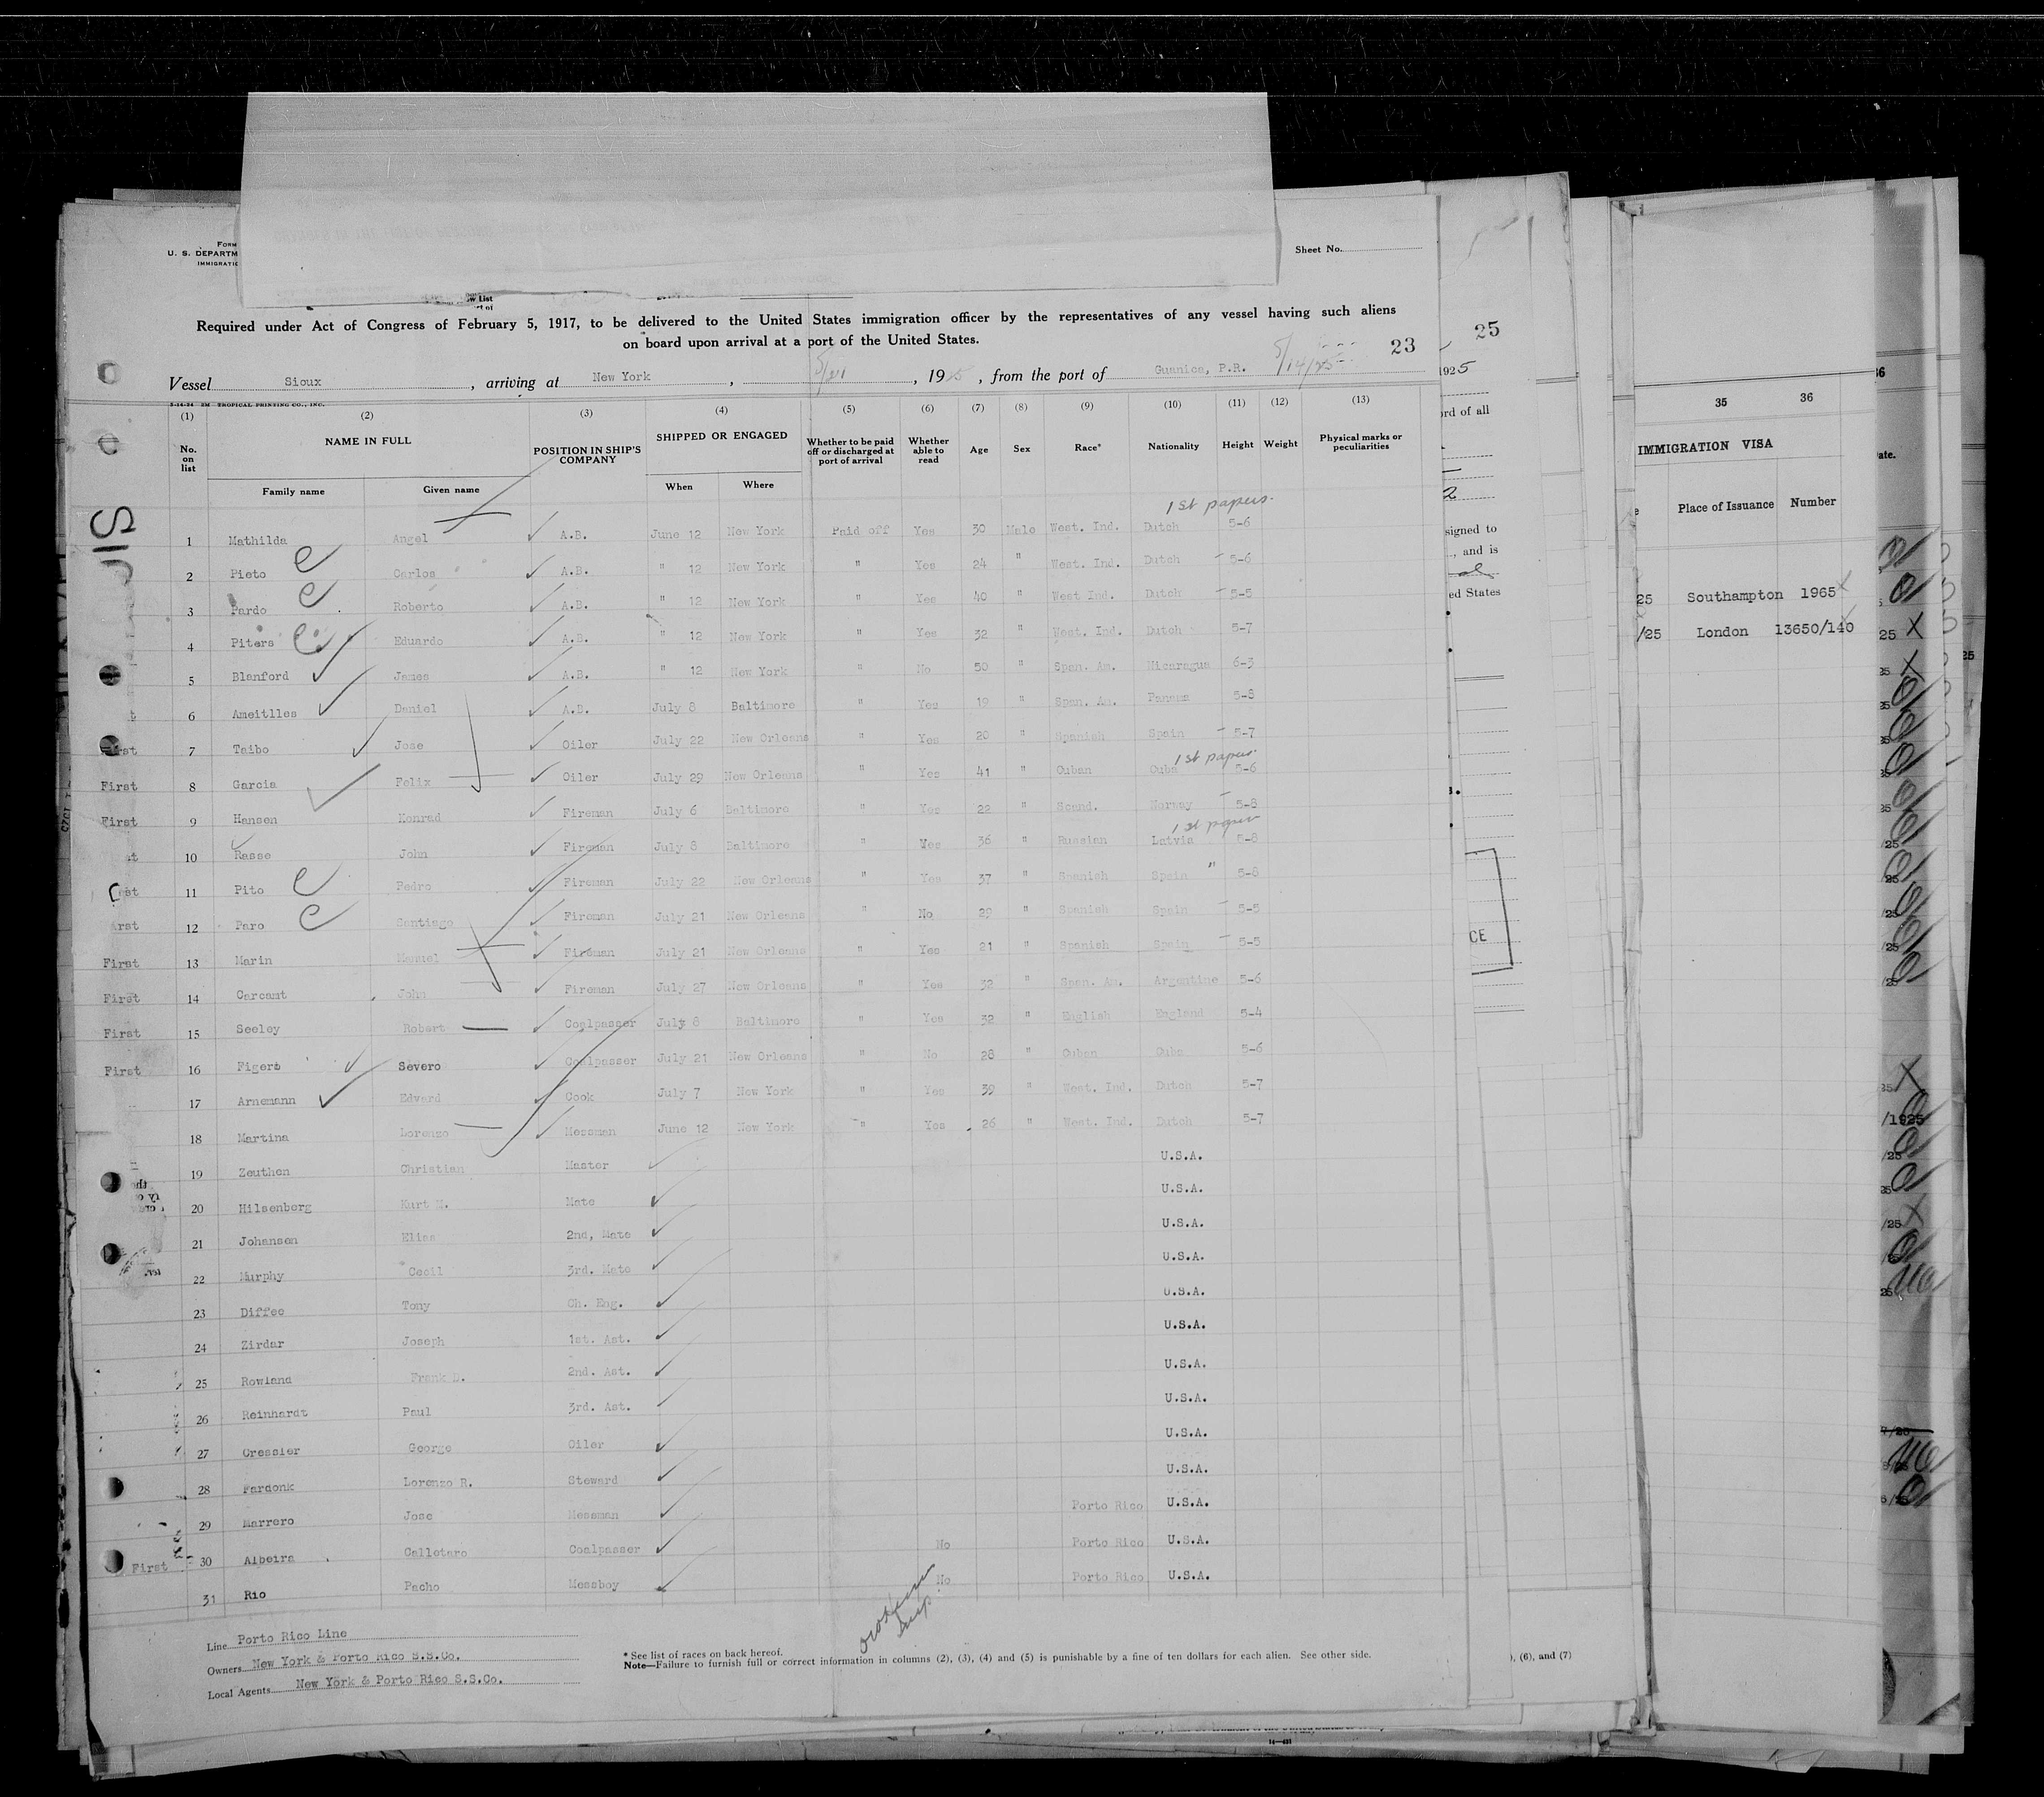 Form
U. S. DEPARTM
IMMIGRATIO
Sheet No.
w List
rt of
Required under Act of Congress of February 5, 1917, to be delivered to the United States immigration officer by the representatives of any vessel having such aliens
on board upon arrival at a port of the United States.
23
25
Vessel Sioux, arriving at New York, 5/21, 1925, from the port of Guanica, P.R. 5/14/25
1925
3-14-24 2M TROPICAL PRINTING CO., INC.
(1) (2) (3) (4) (5) (6) (7) (8) (9) (10) (11) (12) (13)
No. on list NAME IN FULL POSITION IN SHIP'S COMPANY SHIPPED OR ENGAGED Whether to be paid off or discharged at port of arrival Whether able to read Age Sex Race* Nationality Height Weight Physical marks or peculiarities
Family name Given name When Where
1st papers.
1 Mathilda Angel A.B. June 12 New York Paid off Yes 30 Male West. Ind. Dutch 5-6
2 Pieto Carlos A.B. " 12 New York " Yes 24 " West. Ind. Dutch 5-6
3 Pardo Roberto A.B. " 12 New York " Yes 40 " West Ind. Dutch 5-5
4 Piters Eduardo A.B. " 12 New York " Yes 32 " West. Ind. Dutch 5-7
5 Blanford James A.B. " 12 New York " No 50 " Span. Am. Nicaragua 6-3
6 Ameitlles Daniel A.B. July 8 Baltimore " Yes 19 " Span. Am. Panama 5-8
First 7 Taibo Jose Oiler July 22 New Orleans " Yes 20 " Spanish Spain 5-7
1st papers.
First 8 Garcia Felix Oiler July 29 New Orleans " Yes 41 " Cuban Cuba 5-6
First 9 Hansen Konrad Fireman July 6 Baltimore " Yes 22 " Scand. Norway 5-8
1st paper
st 10 Rasse John Fireman July 8 Baltimore " Yes 36 " Russian Latvia 5-8
rst 11 Pito Pedro Fireman July 22 New Orleans " Yes 37 " Spanish Spain " 5-8
irst 12 Paro Santiago Fireman July 21 New Orleans " No 29 " Spanish Spain 5-5
First 13 Marin Manuel Fireman July 21 New Orleans " Yes 21 " Spanish Spain 5-5
First 14 Carcamt John Fireman July 27 New Orleans " Yes 32 " Span. Am. Argentine 5-6
First 15 Seeley Robert Coalpasser July 8 Baltimore " Yes 32 " English England 5-4
First 16 Figero Severo Coalpasser July 21 New Orleans " No 28 " Cuban Cuba 5-6
17 Arnemann Edvard Cook July 7 New York " Yes 39 " West. Ind. Dutch 5-7
18 Martina Lorenzo Messman June 12 New York " Yes 26 " West. Ind. Dutch 5-7
19 Zeuthen Christian Master U.S.A.
20 Hilsenborg Kurt M. Mate U.S.A.
21 Johansen Elias 2nd, Mate U.S.A.
22 Murphy Cecil 3rd. Mate U.S.A.
23 Diffee Tony Ch. Eng. U.S.A.
24 Zirdar Joseph 1st. Ast. U.S.A.
25 Rowland Frank D. 2nd. Ast. U.S.A.
26 Reinhardt Paul 3rd. Ast. U.S.A.
27 Cressier George Oiler U.S.A.
28 Fardonk Lorenzo R. Steward U.S.A.
29 Marrero Jose Messman Porto Rico U.S.A.
First 30 Albeira Calletaro Coalpasser No Porto Rico U.S.A.
31 Rio Pacho Messboy No Porto Rico U.S.A.
Line Porto Rico Line
Owners New York & Porto Rico S.S.Co.
Local Agents New York & Porto Rico S.S.Co.
* See list of races on back hereof.
Note—Failure to furnish full or correct information in columns (2), (3), (4) and (5) is punishable by a fine of ten dollars for each alien. See other side.
, (6), and (7)
ord of all
signed to
, and is
ed States
CE
35 36
IMMIGRATION VISA
Place of Issuance Number
25 Southampton 1965
/25 London 13650/140
ate.
/1925